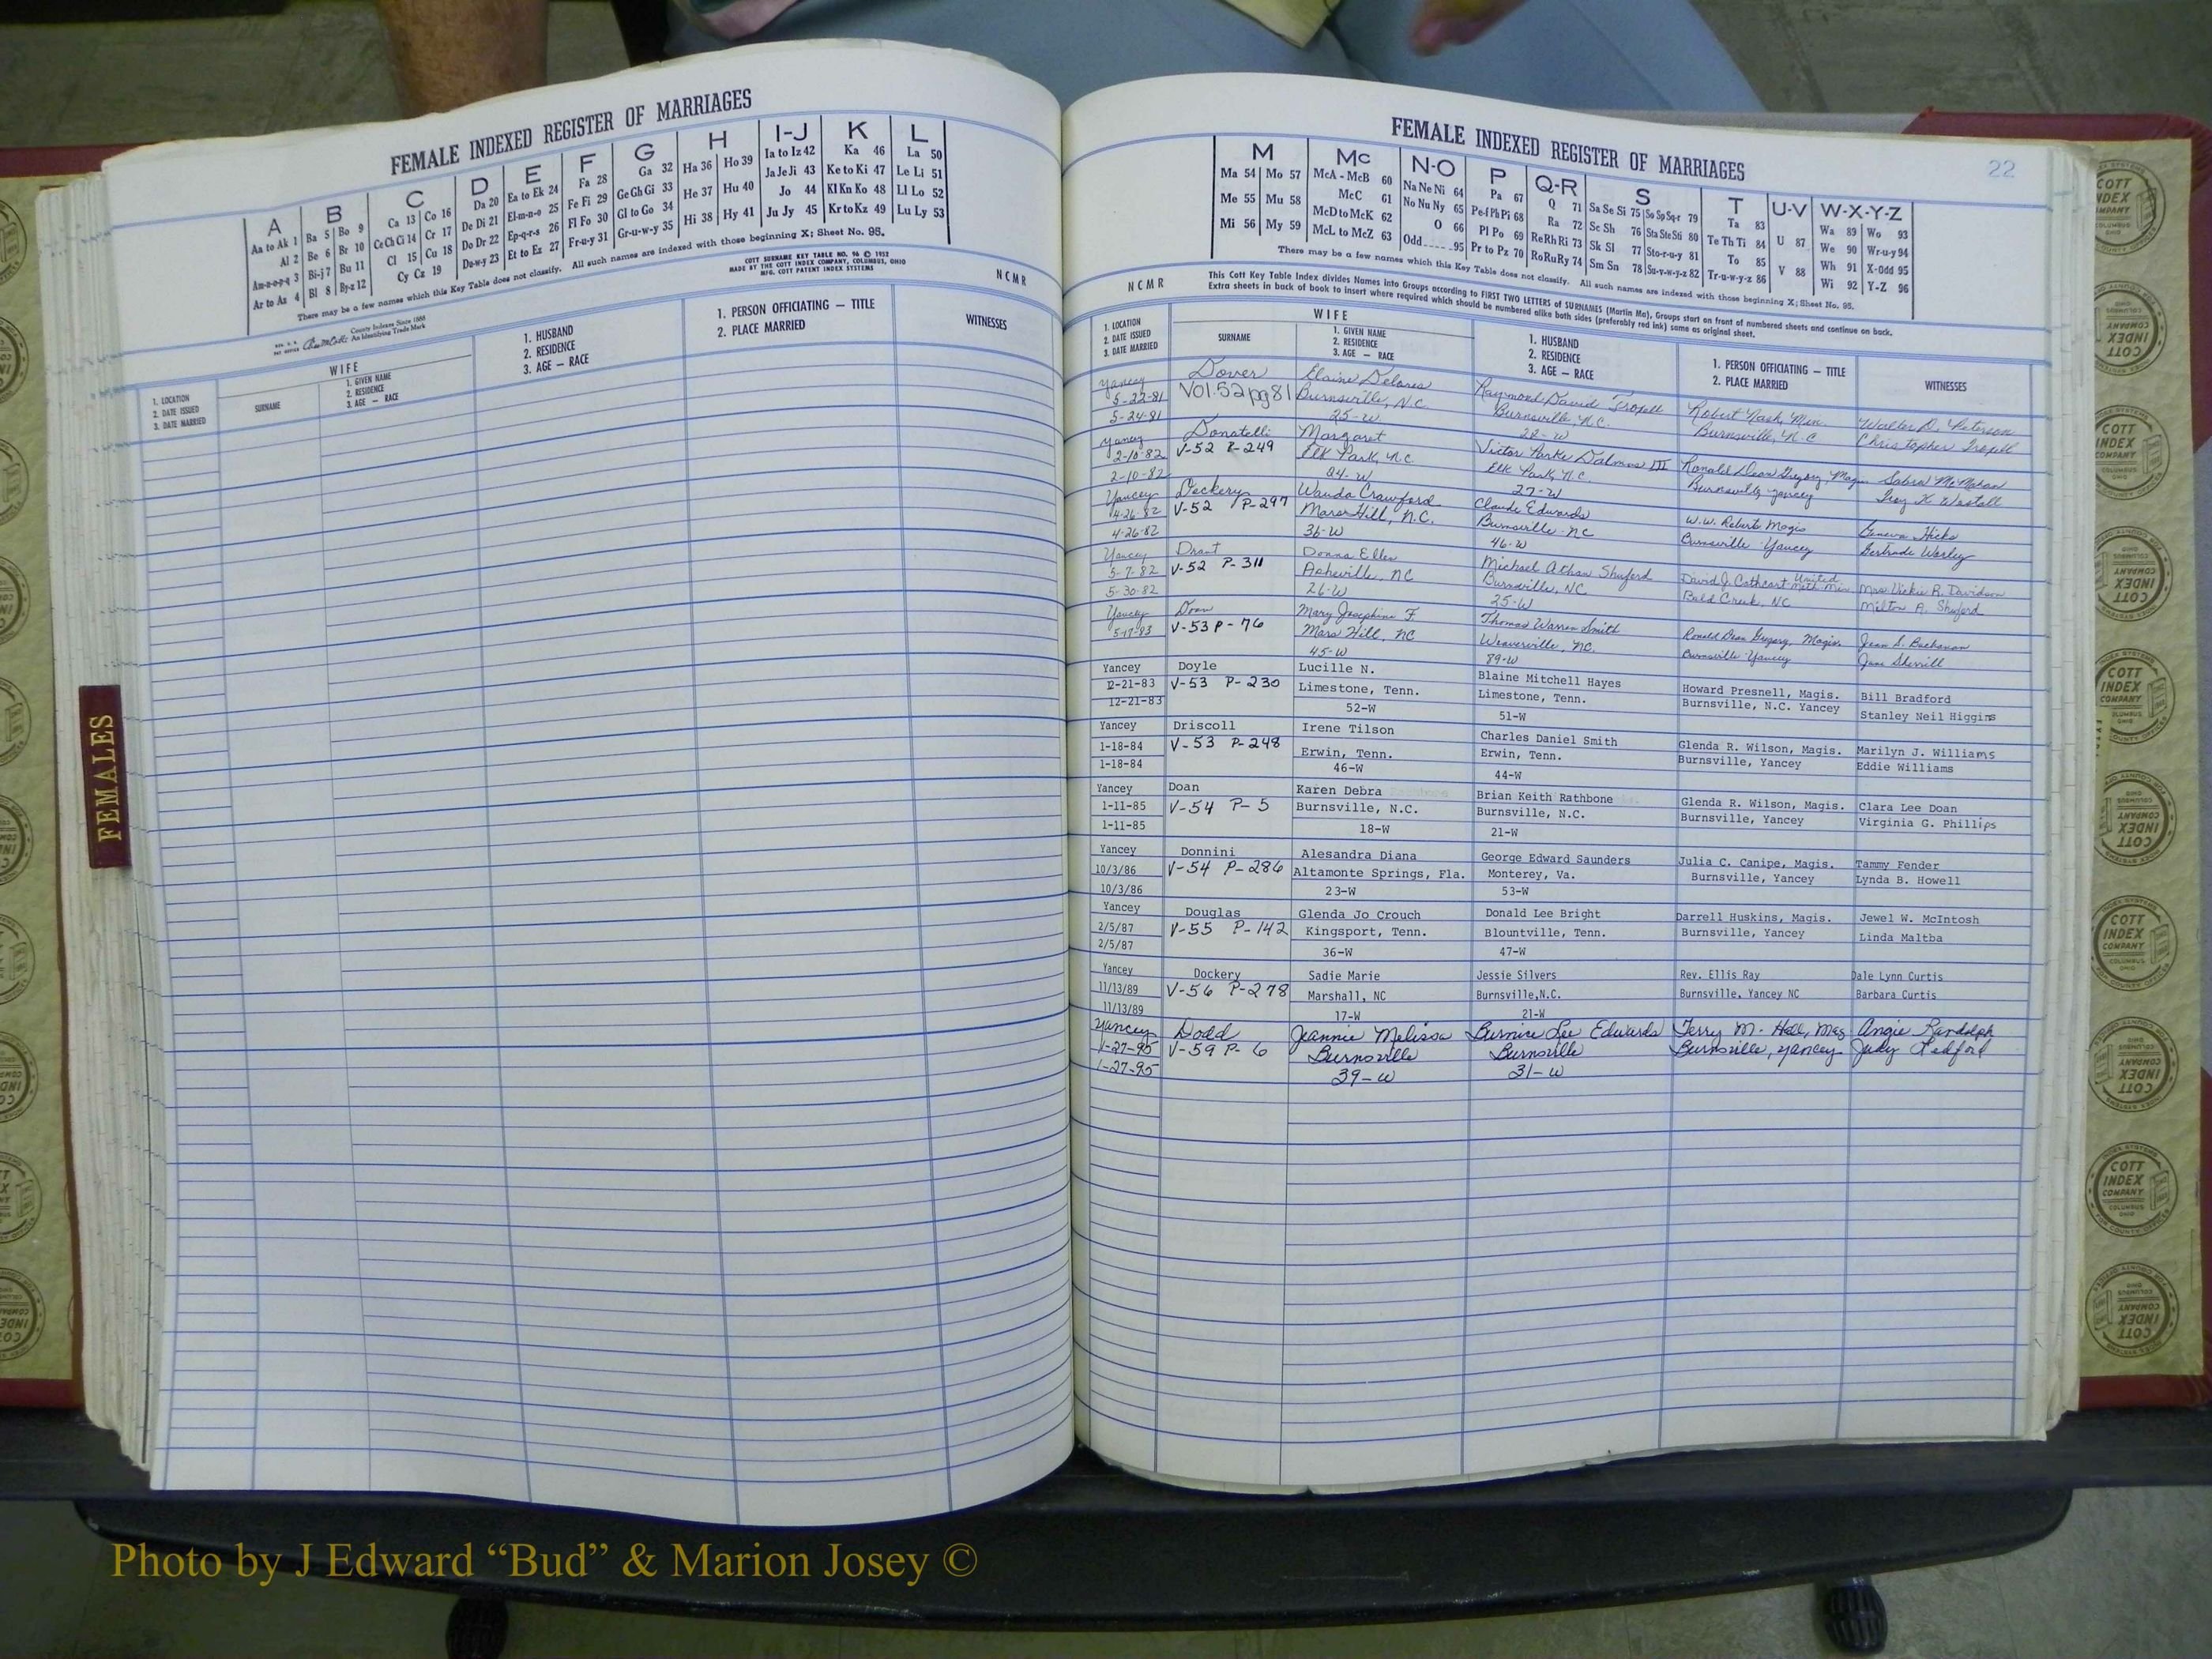 FEMALE INDEXED REGISTER OF MARRIAGES
A B C D E F G H I-J K L
Aa to Ak 1 Ba 5 Bo 9 Ca 13 Co 16 Da 20 Ea to Ek 24 Fa 28 Ga 32 Ha 36 Ho 39 Ia to Iz 42 Ka 46 La 50
Al 2 Be 6 Br 10 Ce Ch Ci 14 Cr 17 De Di 21 El-m-n-o 25 Fe Fi 29 Ge Gh Gi 33 He 37 Hu 40 Ja Je Ji 43 Ke to Ki 47 Le Li 51
Am-n-o-p-q 3 Bi-j 7 Bu 11 Cl 15 Cu 18 Do Dr 22 Ep-q-r-s 26 Fl Fo 30 Gl to Go 34 Hi 38 Hy 41 Jo 44 Kl Kn Ko 48 Ll Lo 52
Ar to Az 4 Bl 8 By-z 12 Cy Cz 19 Du-w-y 23 Et to Ez 27 Fr-u-y 31 Gr-u-w-y 35 Ju Jy 45 Kr to Kz 49 Lu Ly 53
There may be a few names which this Key Table does not classify. All such names are indexed with those beginning X; Sheet No. 95.
COTT SURNAME KEY TABLE NO. 96 © 1952
MADE BY THE COTT INDEX COMPANY, COLUMBUS, OHIO
MFG. COTT PATENT INDEX SYSTEMS
NCMR
County Indexes Since 1888
An Identifying Trade Mark
1. LOCATION
2. DATE ISSUED
3. DATE MARRIED
WIFE
SURNAME
1. GIVEN NAME
2. RESIDENCE
3. AGE — RACE
1. HUSBAND
2. RESIDENCE
3. AGE — RACE
1. PERSON OFFICIATING — TITLE
2. PLACE MARRIED
WITNESSES
FEMALES
FEMALE INDEXED REGISTER OF MARRIAGES
22
M Mc N-O P Q-R S T U-V W-X-Y-Z
Ma 54 Mo 57 McA - McB 60 Na Ne Ni 64 Pa 67 Q 71 Sa Se Si 75 So Sp Sq-r 79 Ta 83 Wa 89 Wo 93
Me 55 Mu 58 McC 61 No Nu Ny 65 Pe-f Ph Pi 68 Ra 72 Sc Sh 76 Sta Ste Sti 80 Te Th Ti 84 U 87 We 90 Wr-u-y 94
Mi 56 My 59 McD to McK 62 O 66 Pl Po 69 Re Rh Ri 73 Sk Sl 77 Sto-r-u-y 81 To 85 V 88 Wh 91 X-Odd 95
McL to McZ 63 Odd 95 Pr to Pz 70 Ro Ru Ry 74 Sm Sn 78 Su-v-w-y-z 82 Tr-u-w-y-z 86 Wi 92 Y-Z 96
There may be a few names which this Key Table does not classify. All such names are indexed with those beginning X; Sheet No. 95.
NCMR
This Cott Key Table Index divides Names into Groups according to FIRST TWO LETTERS of SURNAMES (Martin Ma), Groups start on front of numbered sheets and continue on back.
Extra sheets in back of book to insert where required which should be numbered alike both sides (preferably red ink) same as original sheet.
1. LOCATION
2. DATE ISSUED
3. DATE MARRIED
WIFE
SURNAME
1. GIVEN NAME
2. RESIDENCE
3. AGE — RACE
1. HUSBAND
2. RESIDENCE
3. AGE — RACE
1. PERSON OFFICIATING — TITLE
2. PLACE MARRIED
WITNESSES
Yancey Dover Elaine Delores Raymond David Robert Nash, Min. Walter D. Peterson
5-22-81 Vol.52 pg 81 Burnsville, N.C. Burnsville, N.C. Burnsville, N.C Christopher
5-24-81 25-W 22-W
Yancey Donatelli Margaret Victor Parke III Ronald Dean Gregory Mag. Sabra McMahan
2-10-82 V-52 P-249 Elk Park, NC Elk Park, N.C. Burnsville Yancey
2-10-82 27-W
Yancey Dockery Wanda Crawford Claude Edwards W.W. Roberts Magis Geneva Hicks
4-26-82 V-52 P-297 Mars Hill, N.C. Burnsville NC Burnsville Yancey Gertrude Worley
4-26-82 36-W 46-W
Yancey Donna Ellen Michael Athan Shuford David J. Cathcart United Meth Min Mrs. Vickie R. Davidson
5-7-82 V-52 P-311 Asheville, NC Burnsville, NC Bald Creek, NC Milton A. Shuford
5-30-82 26-W 25-W
Yancey Mary Josephine F. Thomas Warren Smith Ronald Dean Gregory, Magis. Jean S. Buchanan
5-17-83 V-53 P-76 Mars Hill, NC Weaverville, NC. Burnsville Yancey Jane Sherrill
45-W 89-W
Yancey Doyle Lucille N. Blaine Mitchell Hayes Howard Presnell, Magis. Bill Bradford
12-21-83 V-53 P-230 Limestone, Tenn. Limestone, Tenn. Burnsville, N.C. Yancey Stanley Neil Higgins
12-21-83 52-W 51-W
Yancey Driscoll Irene Tilson Charles Daniel Smith Glenda R. Wilson, Magis. Marilyn J. Williams
1-18-84 V-53 P-248 Erwin, Tenn. Erwin, Tenn. Burnsville, Yancey Eddie Williams
1-18-84 46-W 44-W
Yancey Doan Karen Debra Brian Keith Rathbone Glenda R. Wilson, Magis. Clara Lee Doan
1-11-85 V-54 P-5 Burnsville, N.C. Burnsville, N.C. Burnsville, Yancey Virginia G. Phillips
1-11-85 18-W 21-W
Yancey Donnini Alesandra Diana George Edward Saunders Julia C. Canipe, Magis. Tammy Fender
10/3/86 V-54 P-286 Altamonte Springs, Fla. Monterey, Va. Burnsville, Yancey Lynda B. Howell
10/3/86 23-W 53-W
Yancey Douglas Glenda Jo Crouch Donald Lee Bright Darrell Huskins, Magis. Jewel W. McIntosh
2/5/87 V-55 P-142 Kingsport, Tenn. Blountville, Tenn. Burnsville, Yancey Linda Maltba
2/5/87 36-W 47-W
Yancey Dockery Sadie Marie Jessie Silvers Rev. Ellis Ray Dale Lynn Curtis
11/13/89 V-56 P-278 Marshall, NC Burnsville,N.C. Burnsville, Yancey NC Barbara Curtis
11/13/89 17-W 21-W
Yancey Dodd Jeannie Melissa Burnice Lee Edwards Terry M. Hall, Mag Angie Randolph
1-27-95 V-59 P-6 Burnsville Burnsville Burnsville, Yancey Judy Ledford
1-27-95 39-W 31-W
COTT INDEX COMPANY
COLUMBUS OHIO
Photo by J Edward “Bud” & Marion Josey ©